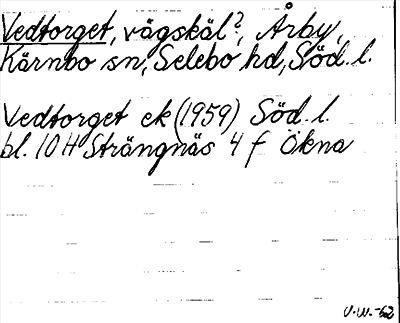 Vedtorget, vägskäl?, Årby,
Kärnbo sn, Selebo hd, Söd. l.
Vedtorget ek (1959) Söd. l.
bl. 10 H Strängnäs 4 f Ökna
V.W. -62